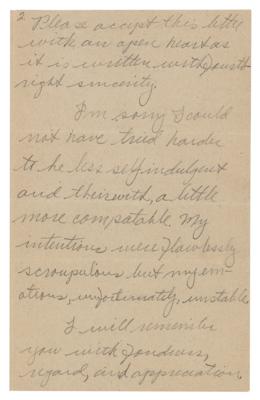 2
Please accept this letter
with an open heart as
it is written with forth-
right sincerity.
I'm sorry I could
not have tried harder
to be less self indulgent
and therewith, a little
more compatable. My
intentions were flawlessly
scroupulous but my em-
otions, unfortunately, unstable.
I will remember
you with fondness,
regard, and appreciation.